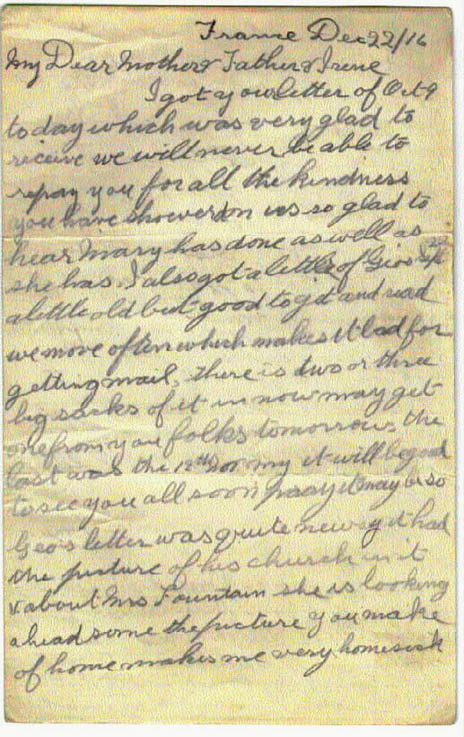 France Dec 22/16
My Dear Mother & Father & Irene
I got your letter of Oct 9
today which was very glad to
receive we will never be able to
repay you for all the kindness
you have showerd on us so glad to
hear Mary has done as well as
she has. I also got a letter of Geos
a little old but good to get and read
we move often which makes it bad for
getting mail, there is two or three
big sacks of it in now may get
one from you folks tomorrow the
last was the 12th my it will be good
to see you all soon pray it may be so
Geo's letter was quite newsy it had
the picture of his church in it
& about Mrs Fountain she is looking
ahead some the picture you make
of home makes me very homesick